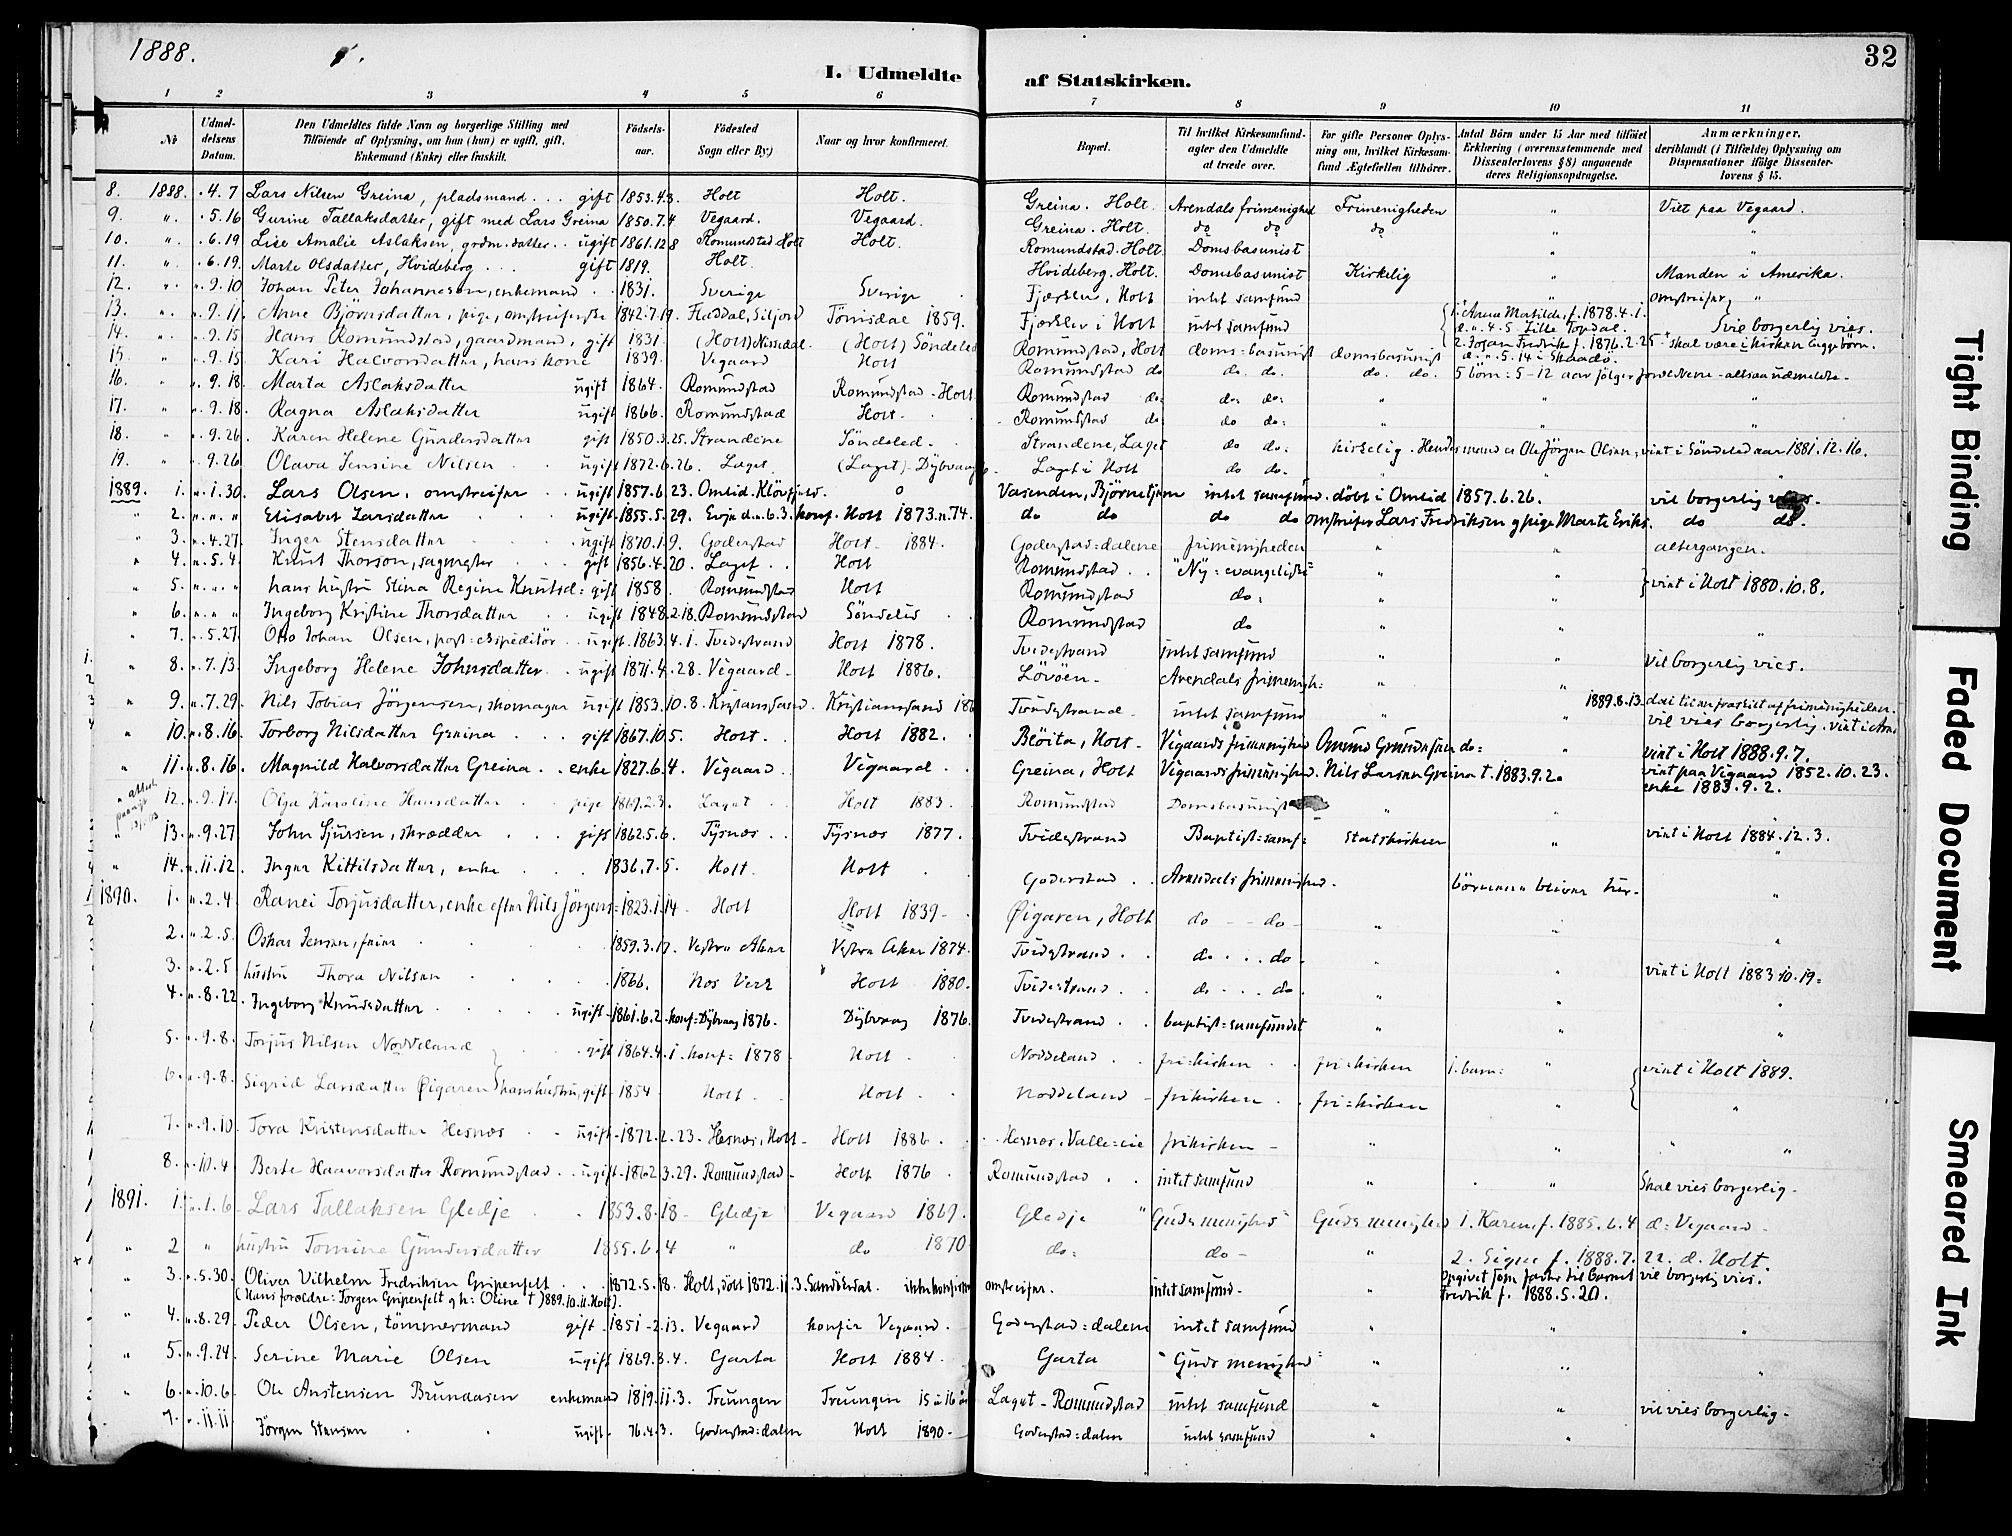 1888.
I. Udmeldte af Statskirken.
32
1 2 3 4 5 6 7 8 9 10 11
No
Udmeldelsens Datum.
Den Udmeldtes fulde Navn og borgerlige Stilling med Tilføiende af Oplysning, om han (hun) er ugift, gift, Enkemand (Enke) eller fraskilt.
Fødselsaar.
Fødested Sogn eller By.)
Naar og hvor konfirmeret.
Bopæl.
Til hvilket Kirkesamfund agter den Udmeldte at træde over.
For gifte Personer Oplysning om, hvilket Kirkesamfund Ægtefællen tilhører.
Antal Börn under 15 Aar med tilføiet Erklæring (overensstemmende med Dissenterlovens § 8) angaaende deres Religionsopdragelse.
Anmærkninger, deriblandt (i Tilfælde) Oplysning om Dispensationer ifølge Dissenterlovens § 15.
8. 1888. 4. 7 Lars Nilsen Greina, pladsmand . . . gift 1853.4.3. Holt Holt. Greina. Holt. Arendals frimenighed Frimenigheden " Viet paa Vegaard.
9. " . 5.16 Gurine Tallaksdatter, gift med Lars Greina 1850.7.4 Vegaard. Vegaard. Greina. Holt. do do do " "
10. " . 6.19 Lise Amalie Aslaksen, grdm. datter . . ugift 1861.12.8 Romundstad Holt Holt. Romundstad. Holt Domsbasunist " "
11. " . 6.19. Marte Olsdatter, Hvideberg . . . gift 1819. Holt. Hvideberg. Holt. Domsbasunist Kirkelig " Manden i Amerika.
12. " ". 9.10 Johan Peter Johannesen, enkemand . . 1831. Sverige Sverige Fjærkler, Holt intet samfund " omstreifer "
13. " ". 9.11. Anne Björnsdatter, pige, omstreiferske 1842.7.19. Fladdal, Siljord Törrisdal 1859. Fjærkler i Holt intet samfund 1. Anna Matilde, f. 1878.4.1. d. ". 4.5 Lille Topdal. 2. Johan Fredrik f. 1876.2.25 d. ". 5.14 i Skaadö. vil borgerlig vies. skal være i kirken lægge børn.
14. " ". 9.15 Hans Romundstad, gaardmand, gift 1831 (Holt) Nissedal. (Holt) Söndeled Romundstad, Holt doms=basunist domsbasunist
15. " ". 9.15. Kari Halvorsdatter, hans kone 1839. Vegaard Holt Romundstad do do. do. do. do. 5 börn: 5-12 aar følger forældrene - altsaa udmeldte -
16. " ". 9.18. Marta Aslaksdatter ugift 1864. Romundstad Romundstad - Holt. Romundstad do: do: do: " " "
17. " ". 9.18. Ragna Aslaksdatter ugift 1866. Romundstad Holt. Romundstad do: do do: " " "
18. " ". 9.26. Karen Helene Gundersdatter gift 1850.3.25. Strandene Söndeled. Strandene, Laget do do: kirkelig. Hendes mand er Ole Jörgen Olsen, viet i Söndeled aar 1881.12.16.
19. " ". 9.26 Olava Jensine Nilsen . . ugift 1872.6.26. Laget. (Laget) Dybvaag Laget i Holt do do. "
1889. 1. ". 1.30. Lars Olsen, omstreifer . . ugift 1857.6.23. Omlid. o Vasenden, Björnetjern intet samfund. döbt i Omlid 1857.6.26. vil borgerlig vies.
" 2. ". ". " Elisabet Larsdatter . . . ugift 1855.5.29. Evje d. n. 6.3. konf. Holt 1873.n.74. do do do do omstreifer Lars Fredriksen og pige Marte Eriks. do do.
" 3. ". 4.27. Inger Stensdatter . . . ugift 1870.1.9. Goderstad Holt 1884. Goderstad=dalene frimenigheden " " altergangen.
" 4. ". 5.4. Knut Thorson, sagmester . . . gift 1856.4.20. Laget . . Holt Romundstad . . "Ny=evangelist" " " viet i Holt 1880.10.8.
" 5. ". ". " hans hustru Stina Regine Knutsd: gift 1858. Romundstad Holt Romundstad do: " "
" 6. ". ". " Ingeborg Kristine Thorsdatter . . ugift 1848.2.18. Romundstad Söndeled Romundstad do " "
" 7. ". 5.27. Otto Johan Olsen, post=ekspeditör . . ugift. 1863.4.1. Tvedestrand Holt 1878. Tvedestrand intet samfund " " Vil borgerlig vies.
" 8. ". 7.13. Ingeborg Helene Johnsdatter . . ugift 1871.4.28. Vegaard - Holt 1886. Lövöen - Arendals frimenigh: " "
" 9. ". 7.29. Nils Tobias Jörgensen, skomager ugift 1853.10.8. Kristiansand. Kristiansand 186 Tvedestrand - intet samfund " 1889.8.13. vil vies borgerlig.
" 10. ". 8.16. Torborg Nilsdatter Greina . . . gift 1867.10.5. Holt. Holt 1882. Bleöita, Holt - Vegaards frimenighed Omund Gundersen do: " viet i Holt 1888.9.7.
" 11. ". 8.16. Magnild Halvorsdatter Greina . . enke 1827.6.4. Vegaard . Vegaard . Greina, Holt Vegaards frimenighed. Nils Larsen Greina t. 1883.9.2. viet paa Vegaard 1852.10.23. enke 1883.9.2.
" 12. ". 9.17. Olga Karoline Hansdatter . . pige 1869.2.3. Laget . Holt 1883. Romundstad Domsbasunist " "
" 13. ". 9.27. John Sjursen, skrædder . . . gift 1862.5.6. Tysnæs . . Tysnæs 1877. Tvedestrand Baptist=samf: Statskirken " viet i Holt 1884.12.3.
" 14. ". 11.12. Inger Kittilsdatter, enke . . . 1836.7.5. Holt. Holt Goderstad . . Arendals frimenighed. börnene bliver her. "
1890. 1. ". 2.4. Ranei Torjusdatter, enke efter Nils Jörgens: 1823.1.14 - Holt Holt 1839 - Øigaren, Holt do - - do - " "
2. ". 2.5. Oskar Jensen, . . . 1859.3.17. Vestre Aker Vestre Aker 1874. Tvedestrand . . do . . . do . " "
3. ". 2.5 hustru Thora Nilsen . . . 1866. Nes Verk Holt 1880. Tvedestrand . . do . . . do . " viet i Holt 1883.10.19.
4. ". 8.22. Ingeborg Knudsdatter . . . ugift - 1861.6.2. konf= Dybvaag 1876. Dybvaag 1876. Tvedestrand . . baptist=samfundet " " "
5. ". 9.8. Torjus Nilsen Noddeland . . gift 1864.4.1. konf: 1878 Holt Noddeland . . fri=kirken . . fri=kirken 1. barn: " viet i Holt 1889.
6. ". 9.8. Sigrid Larsdatter Øigaren hans hustru, gift - 1854 Holt Holt . Noddeland - frikirken . . fri=kirken " "
7. ". 9.10. Tora Kristensdatter Hesnes . . ugift - 1872.2.23. Hesnes, Holt - Holt 1886. Hesnes, Valle=eie frikirken - " " "
8. ". 10.4. Berte Haavorsdatter Romundstad . . ugift - 1862.3.29. Romundstad - Holt 1876 Romundstad . . intet samfund " " Skal vies borgerlig -
1891. 1. ". 1.6 - Lars Tallaksen Gledje . . 1853.8.18 - Gledje Vegaard 1869. Gledje "Guds menighed" Guds menighed 1. Karen, f. 1885.6.4 d: Vegaard -
" 2 " hustru Tomine Gundersdatter 1855.6.4 " do 1870 do: do - " 2. Signe f. 1888.7.22. d. Holt.
" 3. ". 5.30. Oliver Vilhelm Fredriksen Gripenfelt . . 1872.5.18. Holt, döbt 1872.11.3. Sandökedal. ikke konfirm omstreifer. intet samfund - " opgivet som fader til barnet Fredrik f. 1888.5.20. vil borgerlig vies.
(Hans forældre: Jörgen Gripenfelt og h: Oline t) 1889.10.11. Holt).
" 4. ". 8.29. Peder Olsen, tömmermand gift - 1851-2.13. Vegaard konfir Vegaard . Goderstad=dalen intet samfund " " "
" 5. ". 9.24. Serine Marie Olsen ugift 1869.3.4. Garta Holt 1884. Garta "Guds menighed" " " "
" 6. ". 10.6. Ole Anstensen Brundasen enkemand 1819.11.3. Treungen Treungen 15 a 16 aar Laget - Romundstad intet samfund " " vil vies borgerlig -
7. ". 11.11 Jörgen Stensen . . ugift - 76.4.3. Goderstad=dalen Holt 1890 - Goderstad=dalen intet samfund " "
Tight Binding
Faded Document
Smeared Ink